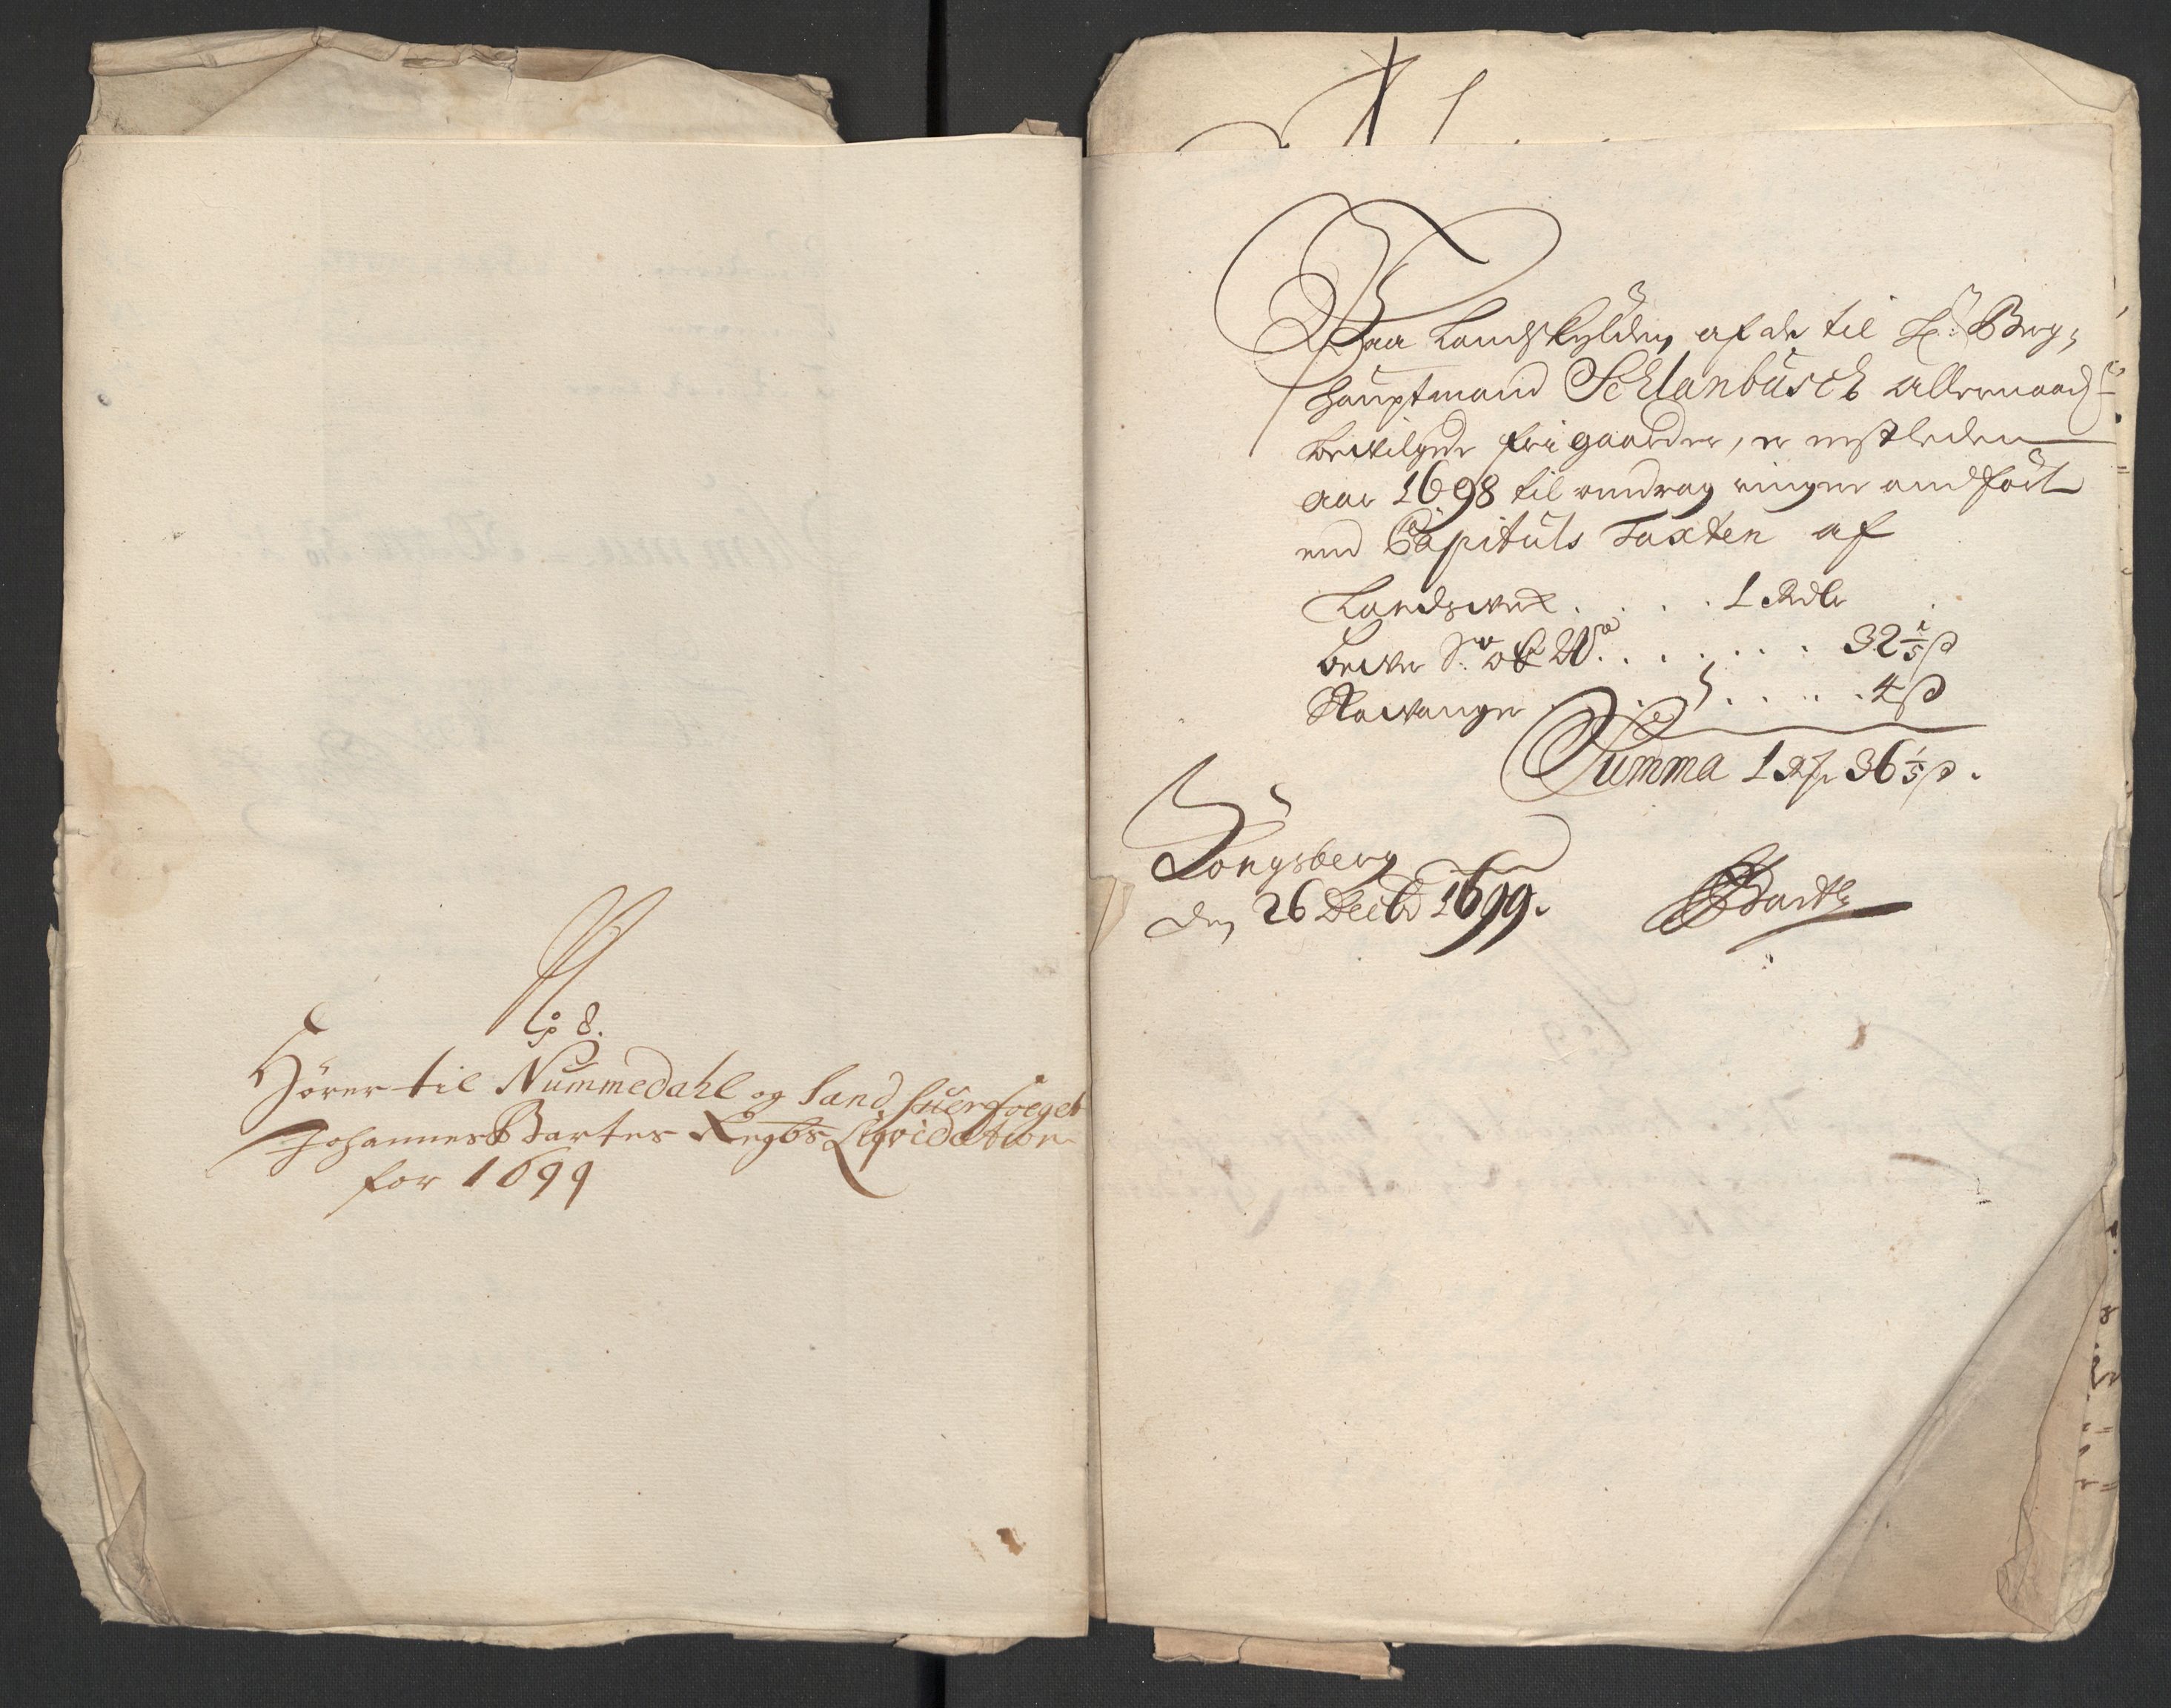 No 8.
Hörer til Nummedahl og Sand suerfoeget
Johannes Bartes Regbs Liqvidation
for 1699
1
Paa Landskylden af de til Hr: Berg,
hauptmand Schlanbusch allernaadst
bevilgede frigaarder, er nestleden
aar 1698 til vedrag ringere andført
end Capituls Taxten af
Landswerk . . . . 1 Rdlr
. . . . . . . 32 1/5 ß
Stavanger . . . . . . 4 ß
Summa 1 Rdr 36 1/5 ß.
Kongsberg
den 26 Decbr 1699.
Barth